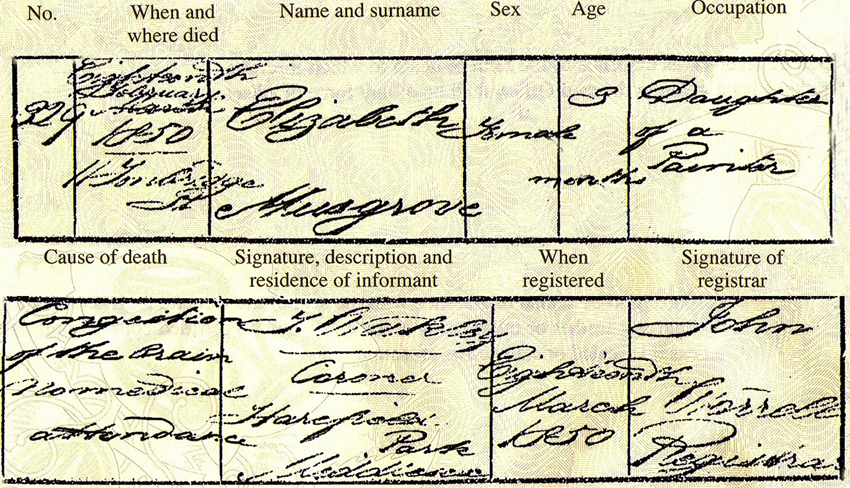 No.
When and
where died
Name and surname
Sex
Age
Occupation
229
Eighteenth
February
1850
11 Tonbridge
St
Elizabeth
Musgrove
Female
3
months
Daughter
of a
Painter
Cause of death
Signature, description and
residence of informant
When
registered
Signature of
registrar
Congestion
of the Brain
No medical
attendance
T. Wakley
Coroner
Harefield
Park
Middlesex
Eighteenth
March
1850
John
Worrell
Registrar